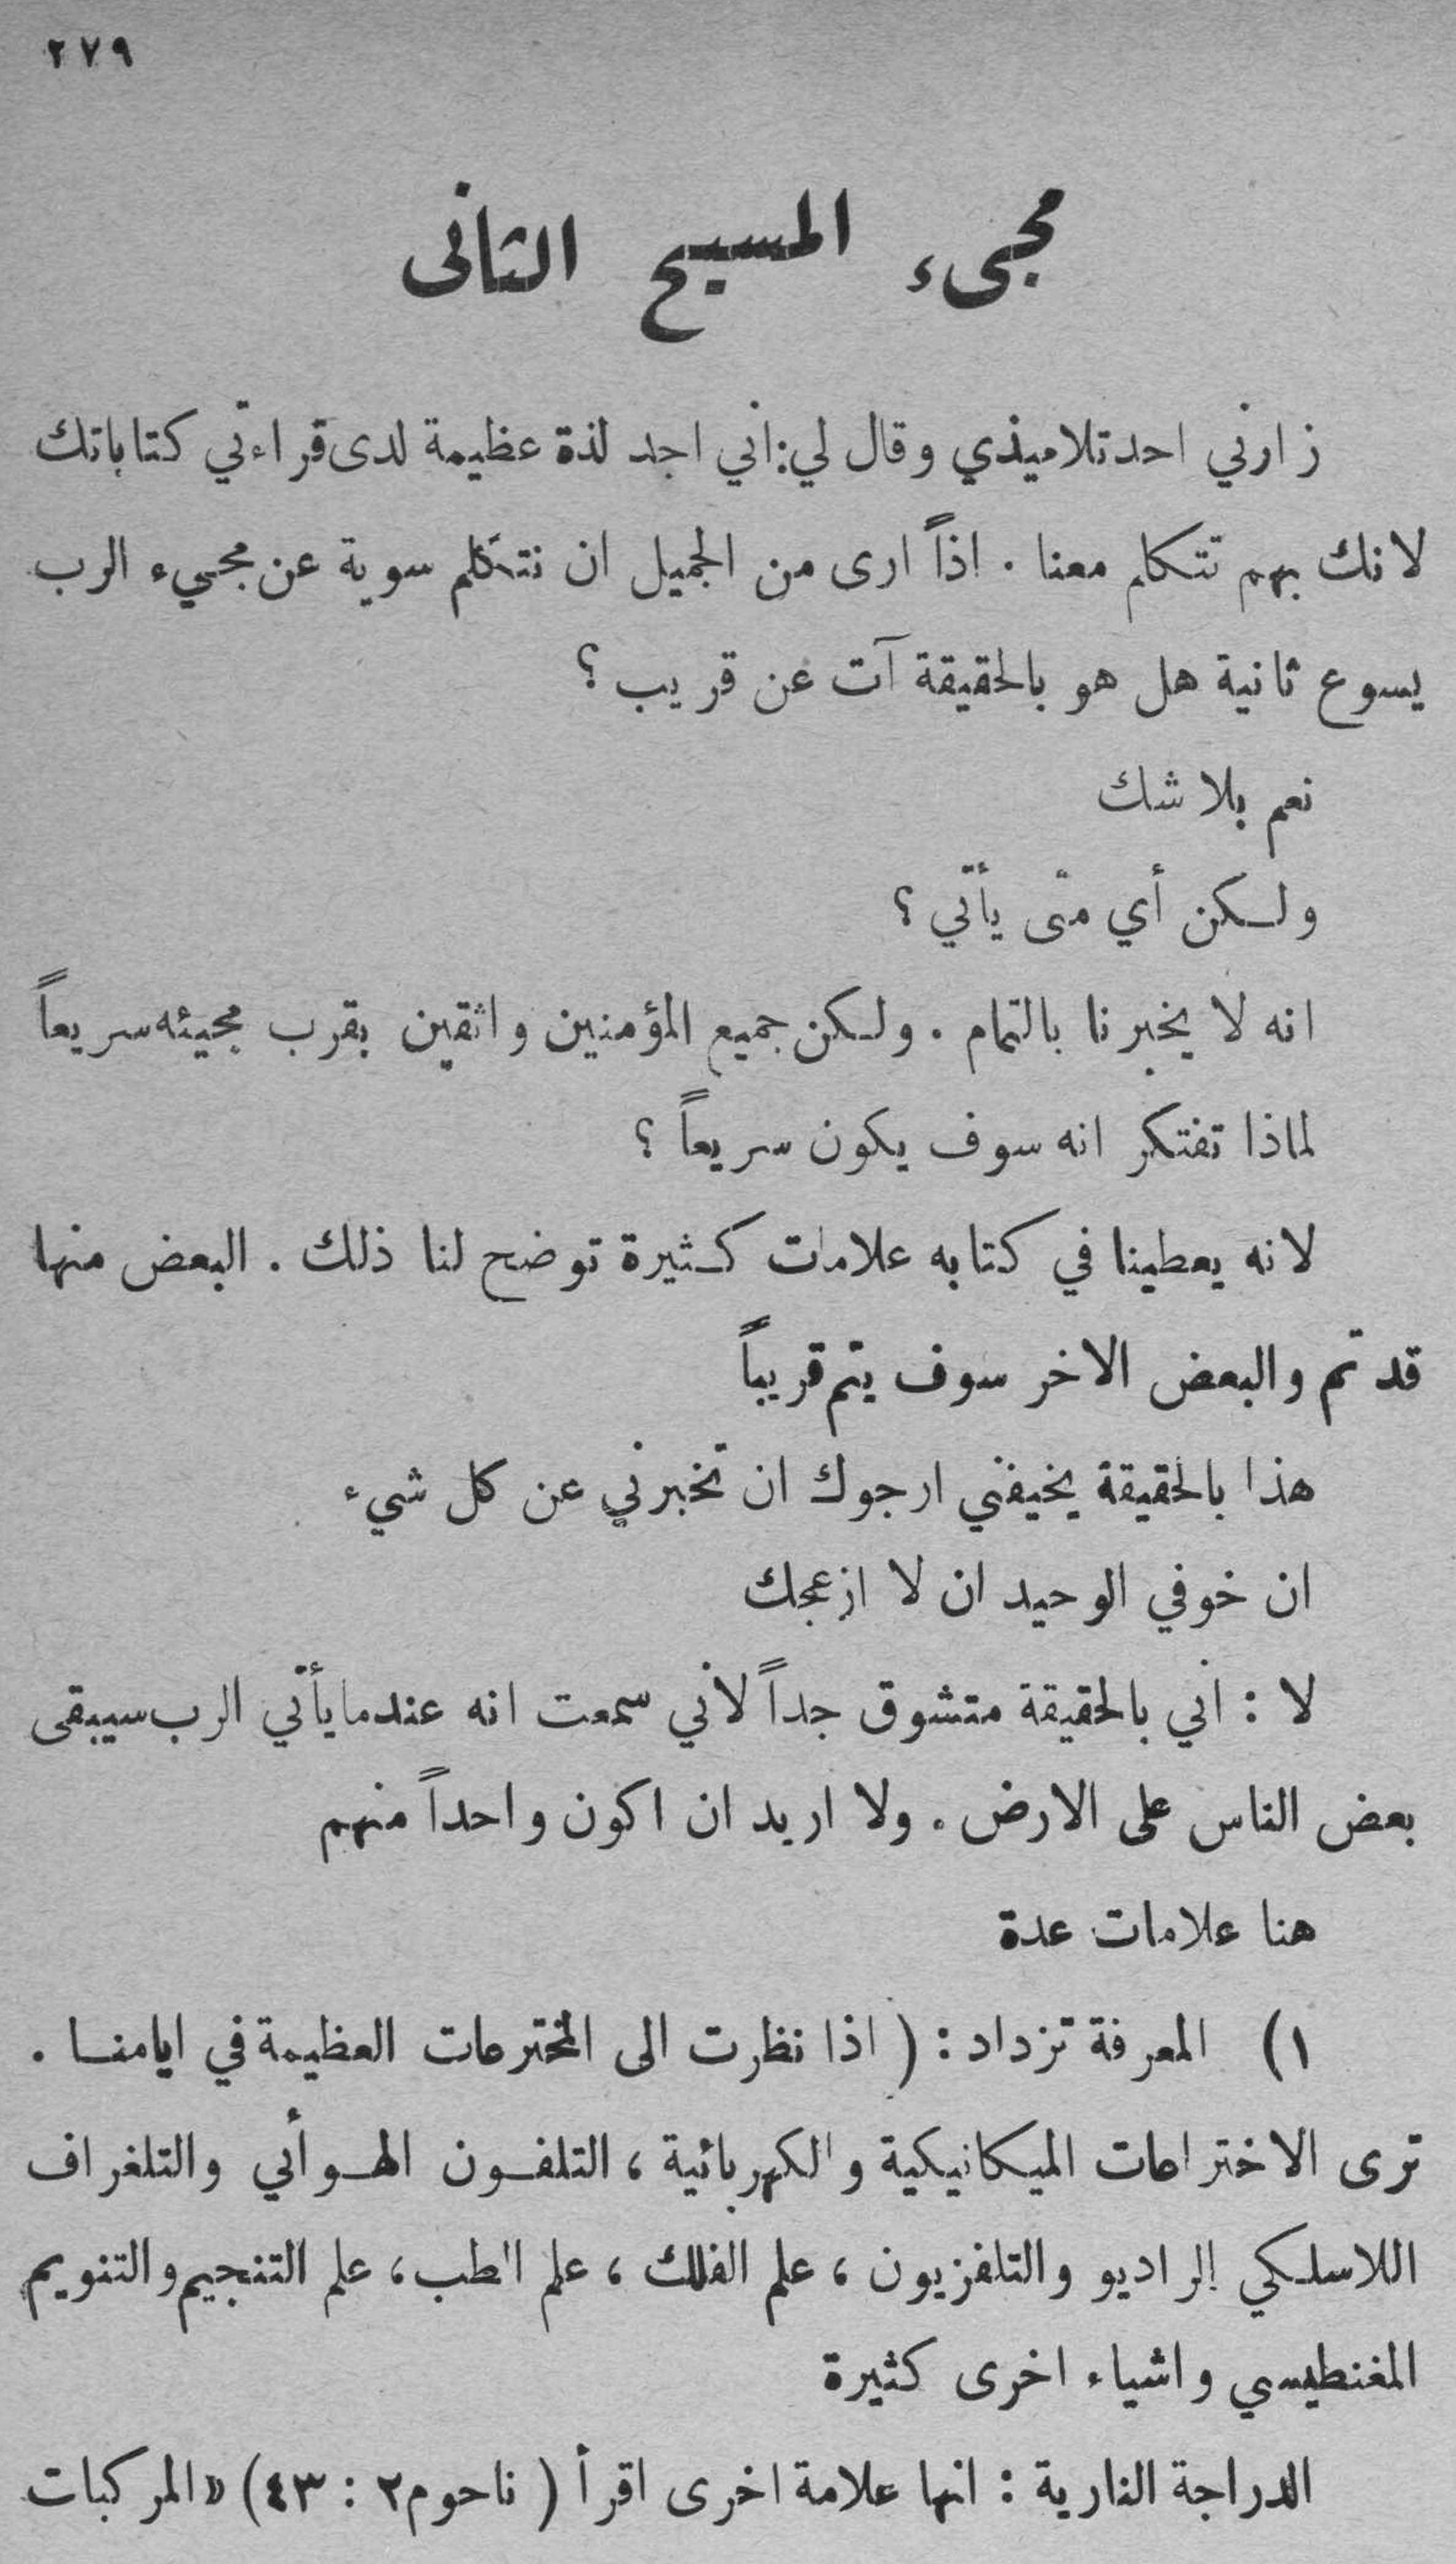 ٢٧٩
مجيء المسيح الثانى
زارني احد تلاميذي وقال لي: اني اجد لذة عظيمة لدى قراءتي كتاباتك
لانك بهم تتكلم معنا . اذاً ارى من الجميل ان نتكلم سوية عن مجيء الرب
يسوع ثانية هل هو بالحقيقة آت عن قريب ؟
نعم بلا شك
ولكن أي متى يأتي ؟
انه لا يخبرنا بالتمام . ولكن جميع المؤمنين واثقين بقرب مجيئه سريعاً
لماذا تفتكر انه سوف يكون سريعاً ؟
لانه يعطينا في كتابه علامات كثيرة توضح لنا ذلك . البعض منها
قد تم والبعض الاخر سوف يتم قريباً
هذا بالحقيقة يخيفني ارجوك ان تخبرني عن كل شيء
ان خوفي الوحيد ان لا ازعجك
لا : اني بالحقيقة متشوق جداً لأني سمعت انه عندما يأتي الرب سيبقى
بعض الناس على الارض . ولا اريد ان اكون واحداً منهم
هنا علامات عدة
١) المعرفة تزداد : ( اذا نظرت الى المخترعات العظيمة في ايامنا .
ترى الاختراعات الميكانيكية والكهربائية ، التلفون الهوأبي والتلغراف
اللاسلكي الراديو والتلفزيون ، علم الفلك ، علم الطب ، علم التنجيم والتنويم
المغنطيسي واشياء اخرى كثيرة
الدراجة النارية : انها علامة اخرى اقرأ ( ناحوم ٢ : ٤٣) «المركبات